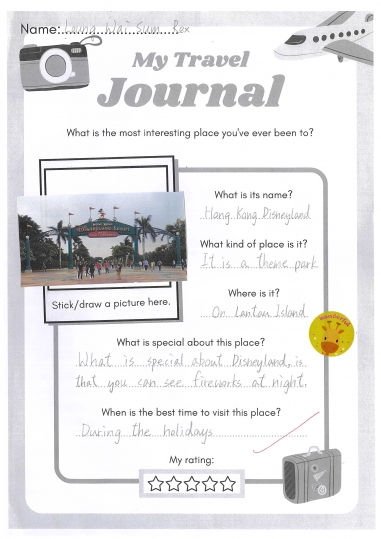 Name: Leung Wai Sum Rex
My Travel
Journal
What is the most interesting place you've ever been to?
What is its name?
Hong Kong Disneyland
What kind of place is it?
It is a theme park
Where is it?
On Lantau Island
Stick/draw a picture here.
wonderful
What is special about this place?
What is special about Disneyland, is
that you can see fireworks at night.
When is the best time to visit this place?
During the holidays
My rating: